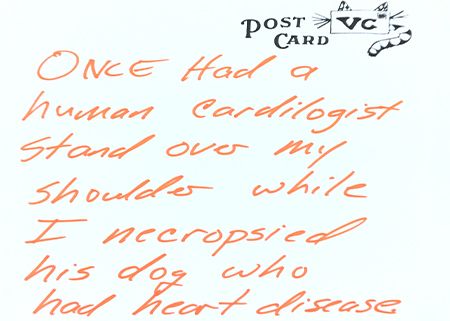 POST
CARD
VC
ONCE Had a
human cardilogist
stand over my
shoulder while
I necropsied
his dog who
had heart disease